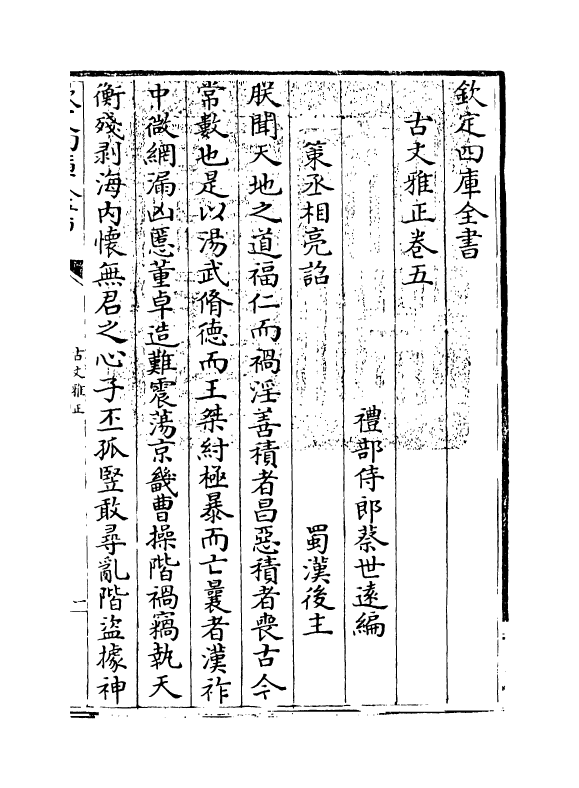 欽定四庫全書
古文雅正卷五
禮部侍郎蔡世遠編
策丞相亮詔
蜀漢後主
朕聞天地之道福仁而禍淫善積者昌惡積者喪古今
常數也是以湯武脩德而王桀紂極暴而亡曩者漢祚
中微網漏凶慝董卓造難震蕩京畿曹操階禍竊執天
衡殘剥海内懷無君之心子丕孤竪敢尋亂階盜據神
古文雅正